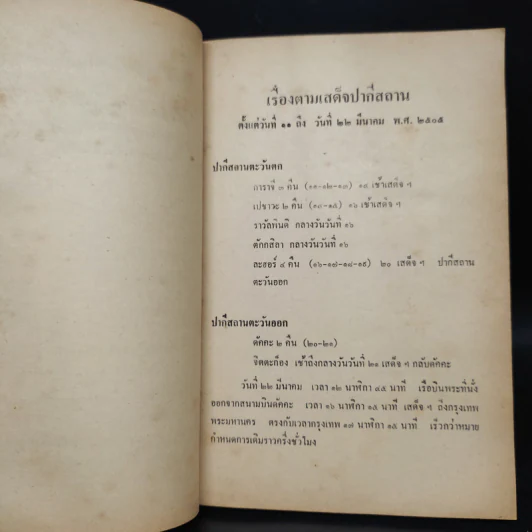 เรื่องตามเสด็จปากีสถาน
ตั้งแต่วันที่ ๑๑ ถึง วันที่ ๒๒ มีนาคม พ.ศ. ๒๕๐๕
ปากีสถานตะวันตก
การาจี ๓ คืน (๑๑-๑๒-๑๓) ๑๔ เช้าเสด็จ ฯ
เปชาวะ ๒ คืน (๑๓-๑๕) ๑๖ เช้าเสด็จ ฯ
ราวัลพินดี กลางวันวันที่ ๑๖
ตักกสิลา กลางวันวันที่ ๑๖
ละฮอร์ ๔ คืน (๑๖-๑๗-๑๘-๑๙) ๒๐ เสด็จ ฯ ปากีสถาน
ตะวันออก
ปากีสถานตะวันออก
ดัคคะ ๒ คืน (๒๐-๒๑)
จิตตะก็อง เช้าถึงกลางวันวันที่ ๒๑ เสด็จ ฯ กลับดัคคะ
วันที่ ๒๒ มีนาคม เวลา ๑๒ นาฬิกา ๔๕ นาที เรือบินพระที่นั่ง
ออกจากสนามบินดัคคะ เวลา ๑๖ นาฬิกา ๑๕ นาที เสด็จ ฯ ถึงกรุงเทพ
พระมหานคร ตรงกับเวลากรุงเทพ ๑๗ นาฬิกา ๑๕ นาที เร็วกว่าหมาย
กำหนดการเดิมราวครึ่งชั่วโมง